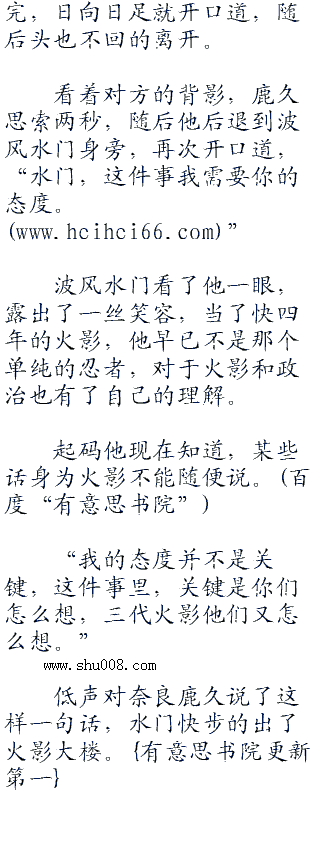 完，日向日足就开口道，随
后头也不回的离开。
看着对方的背影，鹿久
思索两秒，随后他后退到波
风水门身旁，再次开口道，
“水门，这件事我需要你的
态度。
(www.hcihci66.com)”
波风水门看了他一眼，
露出了一丝笑容，当了快四
年的火影，他早已不是那个
单纯的忍者，对于火影和政
治也有了自己的理解。
起码他现在知道，某些
话身为火影不能随便说。(百
度“有意思书院”)
“我的态度并不是关
键，这件事里，关键是你们
怎么想，三代火影他们又怎
么想。”
www.shu008.com
低声对奈良鹿久说了这
样一句话，水门快步的出了
火影大楼。{有意思书院更新
第一}